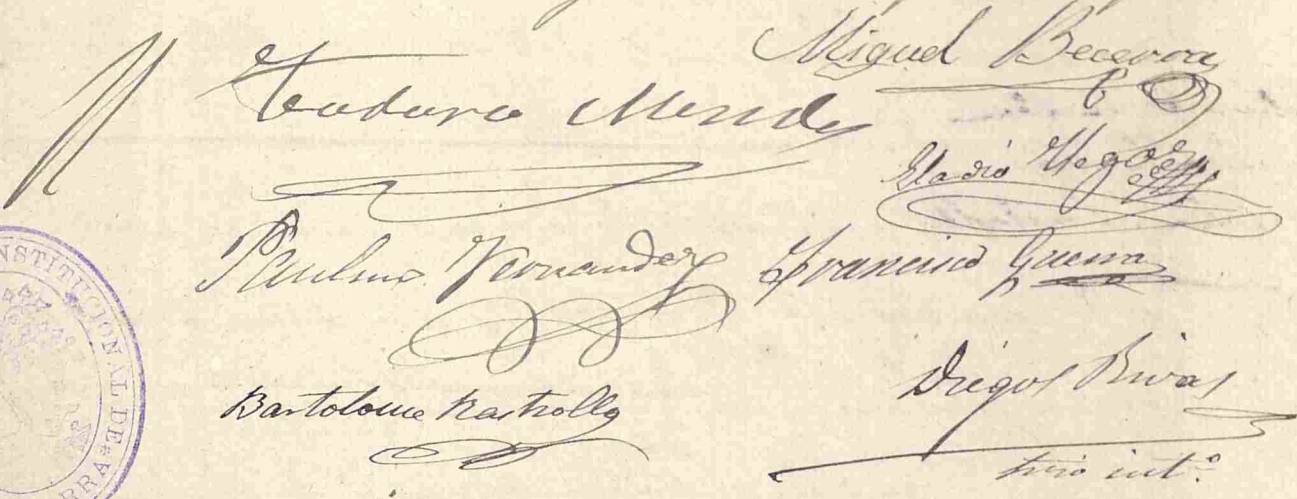 Miguel Becerra
Teodoro Mendez
Eladio
Paulino Fernandez
Francisco Guerra
Bartolome Rastrollo
Diego Rivas
Srio intº.
NSTITUCIONAL DE
RRA